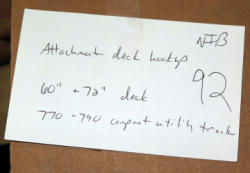 NIB
Attachment deck hookup
92
60" + 72" deck
770 + 790 compact utility tractor